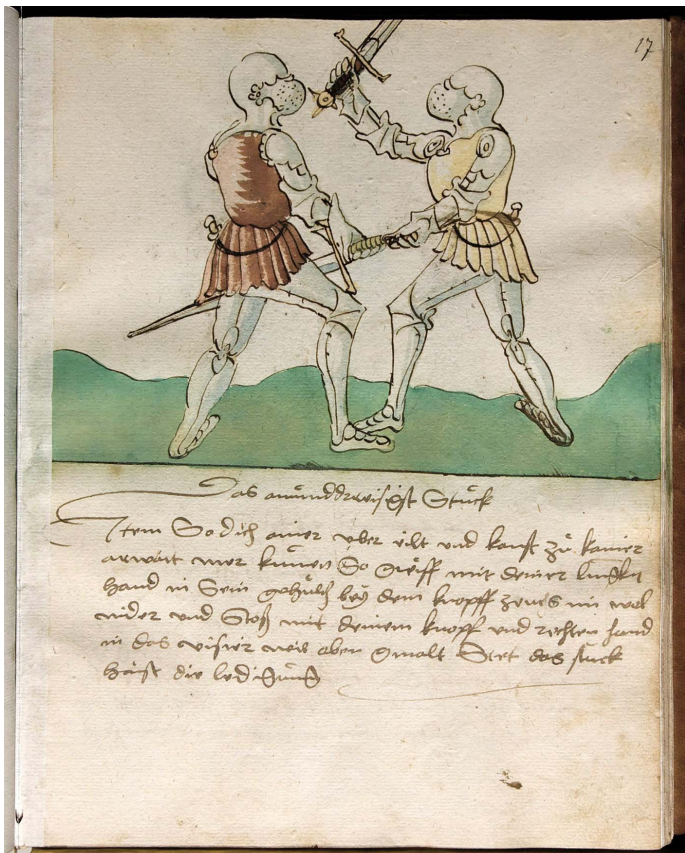 17
Das ainunddreissigist Stuck
Item So dich ainer uber eilt und kanst zu kainer
arwait mer kumen So greiff mit deiner lingken
hand in Sein gehultz bey dem knopff zeuch im wol
nider und Stoß mit deinem knopff und rechten hand
in das visier wie oben gmalt Stet das stuck
haist die